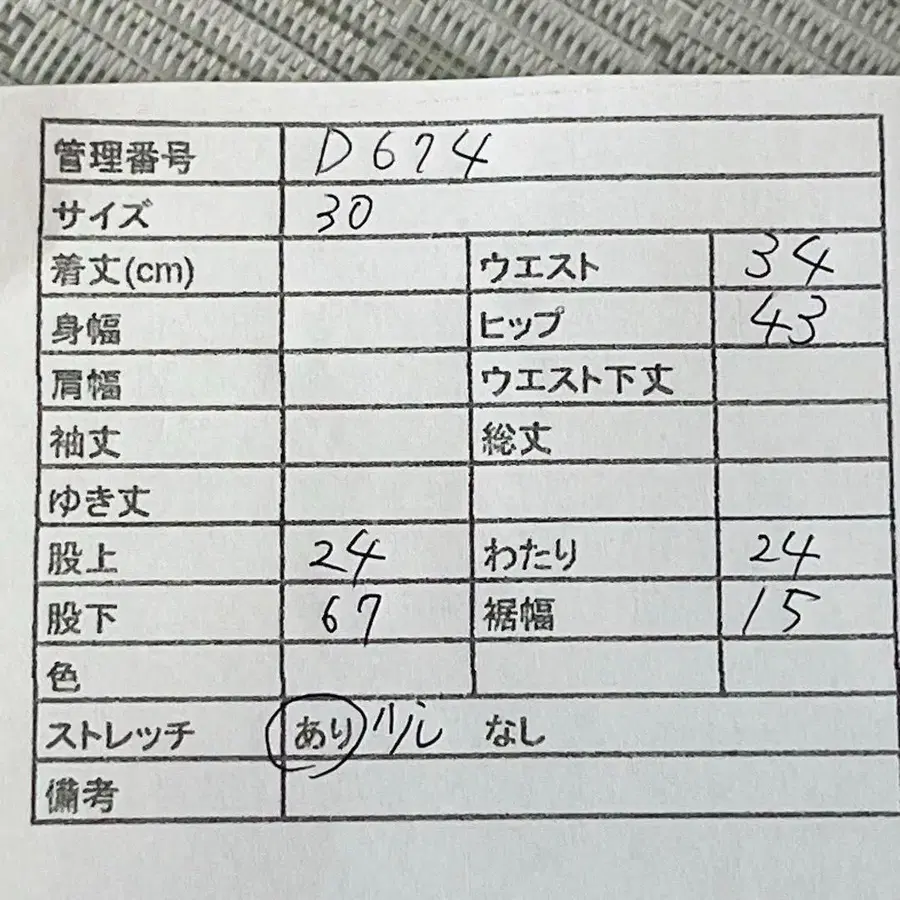 管理番号 D674
サイズ 30
着丈(cm) ウエスト 34
身幅 ヒップ 43
肩幅 ウエスト下丈
袖丈 総丈
ゆき丈
股上 24 わたり 24
股下 67 裾幅 15
色
ストレッチ あり 少し なし
備考